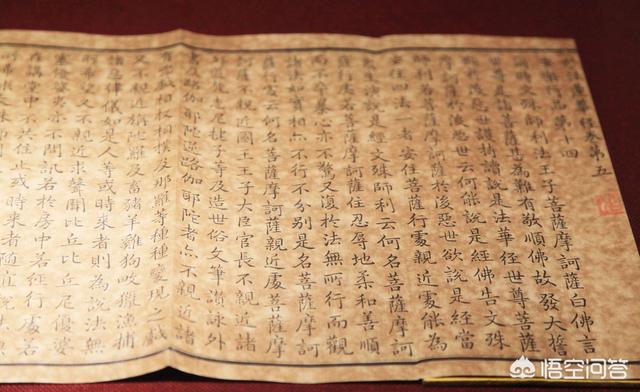 妙法蓮華經卷第五
安樂行品第十四
爾時文殊師利法王子菩薩摩訶薩白佛言
世尊是諸菩薩甚為難有敬順佛故發大誓
願於後惡世護持讀說是法華經世尊菩薩
摩訶薩於後惡世云何能說是經佛告文殊
師利若菩薩摩訶薩於後惡世欲說是經當
安住四法一者安住菩薩行處親近處能為
眾生演說是經文殊師利云何名菩薩摩訶
薩行處若菩薩摩訶薩住忍辱地柔和善順
而不卒暴心亦不驚又復於法無所行而觀
諸法如實相亦不行不分別是名菩薩摩訶
薩行處云何名菩薩摩訶薩親近處菩薩摩
訶薩不親近國王王子大臣官長不親近諸
外道梵志尼揵子等及造世俗文筆讚詠外
書及路伽耶陀逆路伽耶陀者亦不親近諸
有兇戲相扠相撲及那羅等種種變現之戲
又不親近旃陀羅及畜豬羊雞狗畋獵漁捕
諸惡律儀如是人等或時來者則為說法無
所悕望又不親近求聲聞比丘比丘尼優婆
塞優婆夷亦不問訊若於房中若經行處若
在講堂中不共住止或時來者隨宜說法無
悟空问答